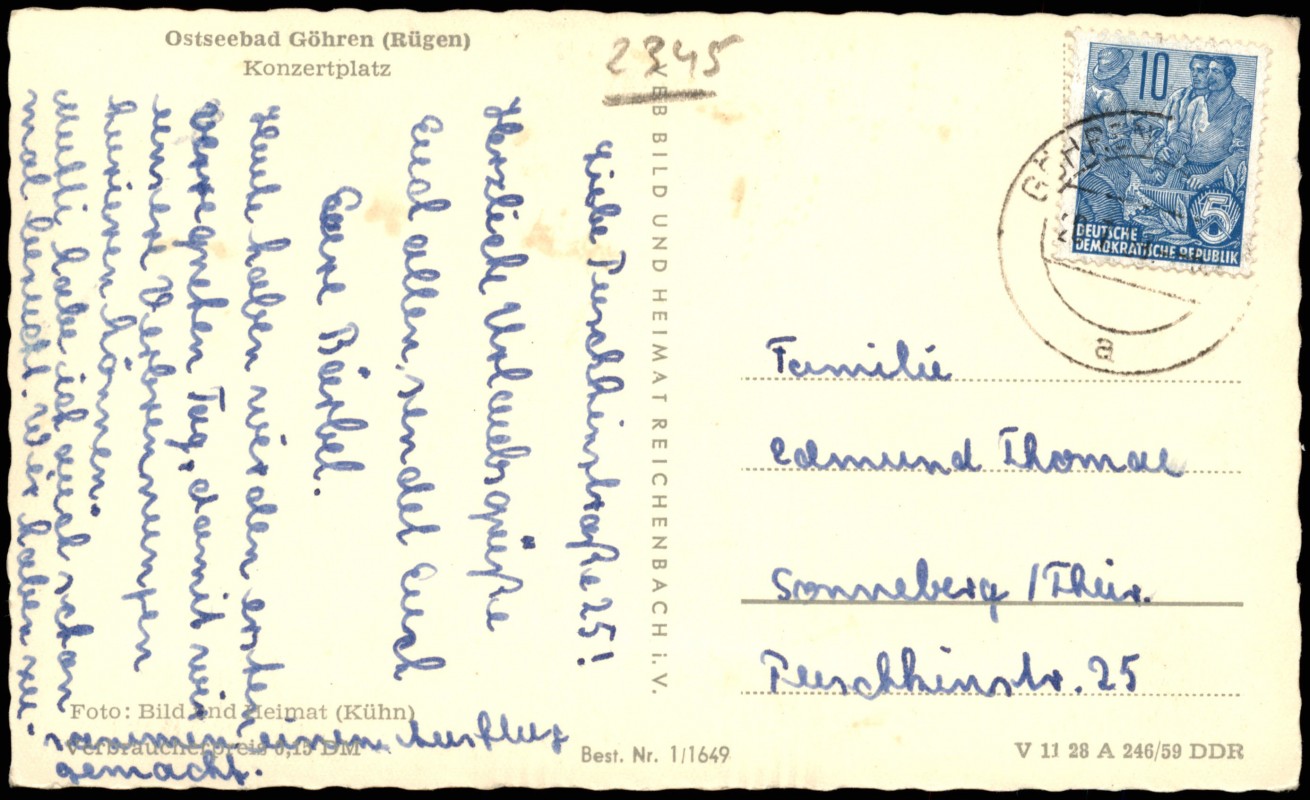 Ostseebad Göhren (Rügen)
Konzertplatz
2345
Liebe Puschkinstraße 25!
Herzliche Urlaubsgrüße
Euch allen, sendet Euch
Eure Bärbel.
Heute haben wir den ersten
verregneten Tag, damit wir
unsere Verbrennungen
kurieren können.
Mutti habe ich auch schon
mal besucht. Wir haben zu-
sammen einen Ausflug
gemacht.
Foto: Bild und Heimat (Kühn)
Verbraucherpreis 0,15 DM
VEB BILD UND HEIMAT REICHENBACH i. V.
Best. Nr. 1/1649
10
5
DEUTSCHE
DEMOKRATISCHE REPUBLIK
GÖHREN
a
Familie
Edmund Thomae
Sonneberg /Thür.
Puschkinstr. 25
V 11 28 A 246/59 DDR